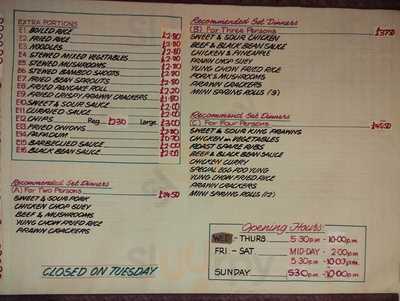 EXTRA PORTIONS
E1 BOILED RICE
E2 FRIED RICE
E3 NOODLES
E4 STEWED MIXED VEGETABLES
E5 STEWED MUSHROOMS
E6 STEWED BAMBOO SHOOTS
E7 FRIED BEAN SPROUTS
E8 FRIED PANCAKE ROLL
E9 FRIED CRISPY PRAWN CRACKERS
E10 SWEET & SOUR SAUCE
E11 CURRIED SAUCE
E12 CHIPS Reg. large
E13 FRIED ONIONS
E14 PAPADUM
E15 BARBECUED SAUCE £2.00
E16 BLACK BEAN SAUCE £2.00
Recommended Set Dinners
(A) For Two Persons
SWEET & SOUR PORK
CHICKEN CHOP SUEY
BEEF & MUSHROOMS
YUNG CHOW FRIED RICE
PRAWN CRACKERS
CLOSED ON TUESDAY
Recommended Set Dinners
(B) For Three Persons
SWEET & SOUR CHICKEN
BEEF & BLACK BEAN SAUCE
CHICKEN & PINEAPPLE
PRAWN CHOP SUEY
YUNG CHOW FRIED RICE
PORK & MUSHROOMS
PRAWN CRACKERS
MINI SPRING ROLLS (9)
Recommend Set Dinners
(C) For Four Persons
SWEET & SOUR KING PRAWNS
CHICKEN in VEGETABLES
ROAST SPARE RIBS
BEEF & BLACK BEAN SAUCE
CHICKEN CURRY
SPECIAL EGG FOO YUNG
YUNG CHOW FRIED RICE
PRAWN CRACKERS
MINI SPRING ROLLS (12)
Opening Hours:
WED - THURS. 5·30p.m - 10·00p.m
FRI - SAT. MID-DAY - 2·00p.m
5·30p.m - 10·00p.m
SUNDAY 5·30p.m - 10·00p.m